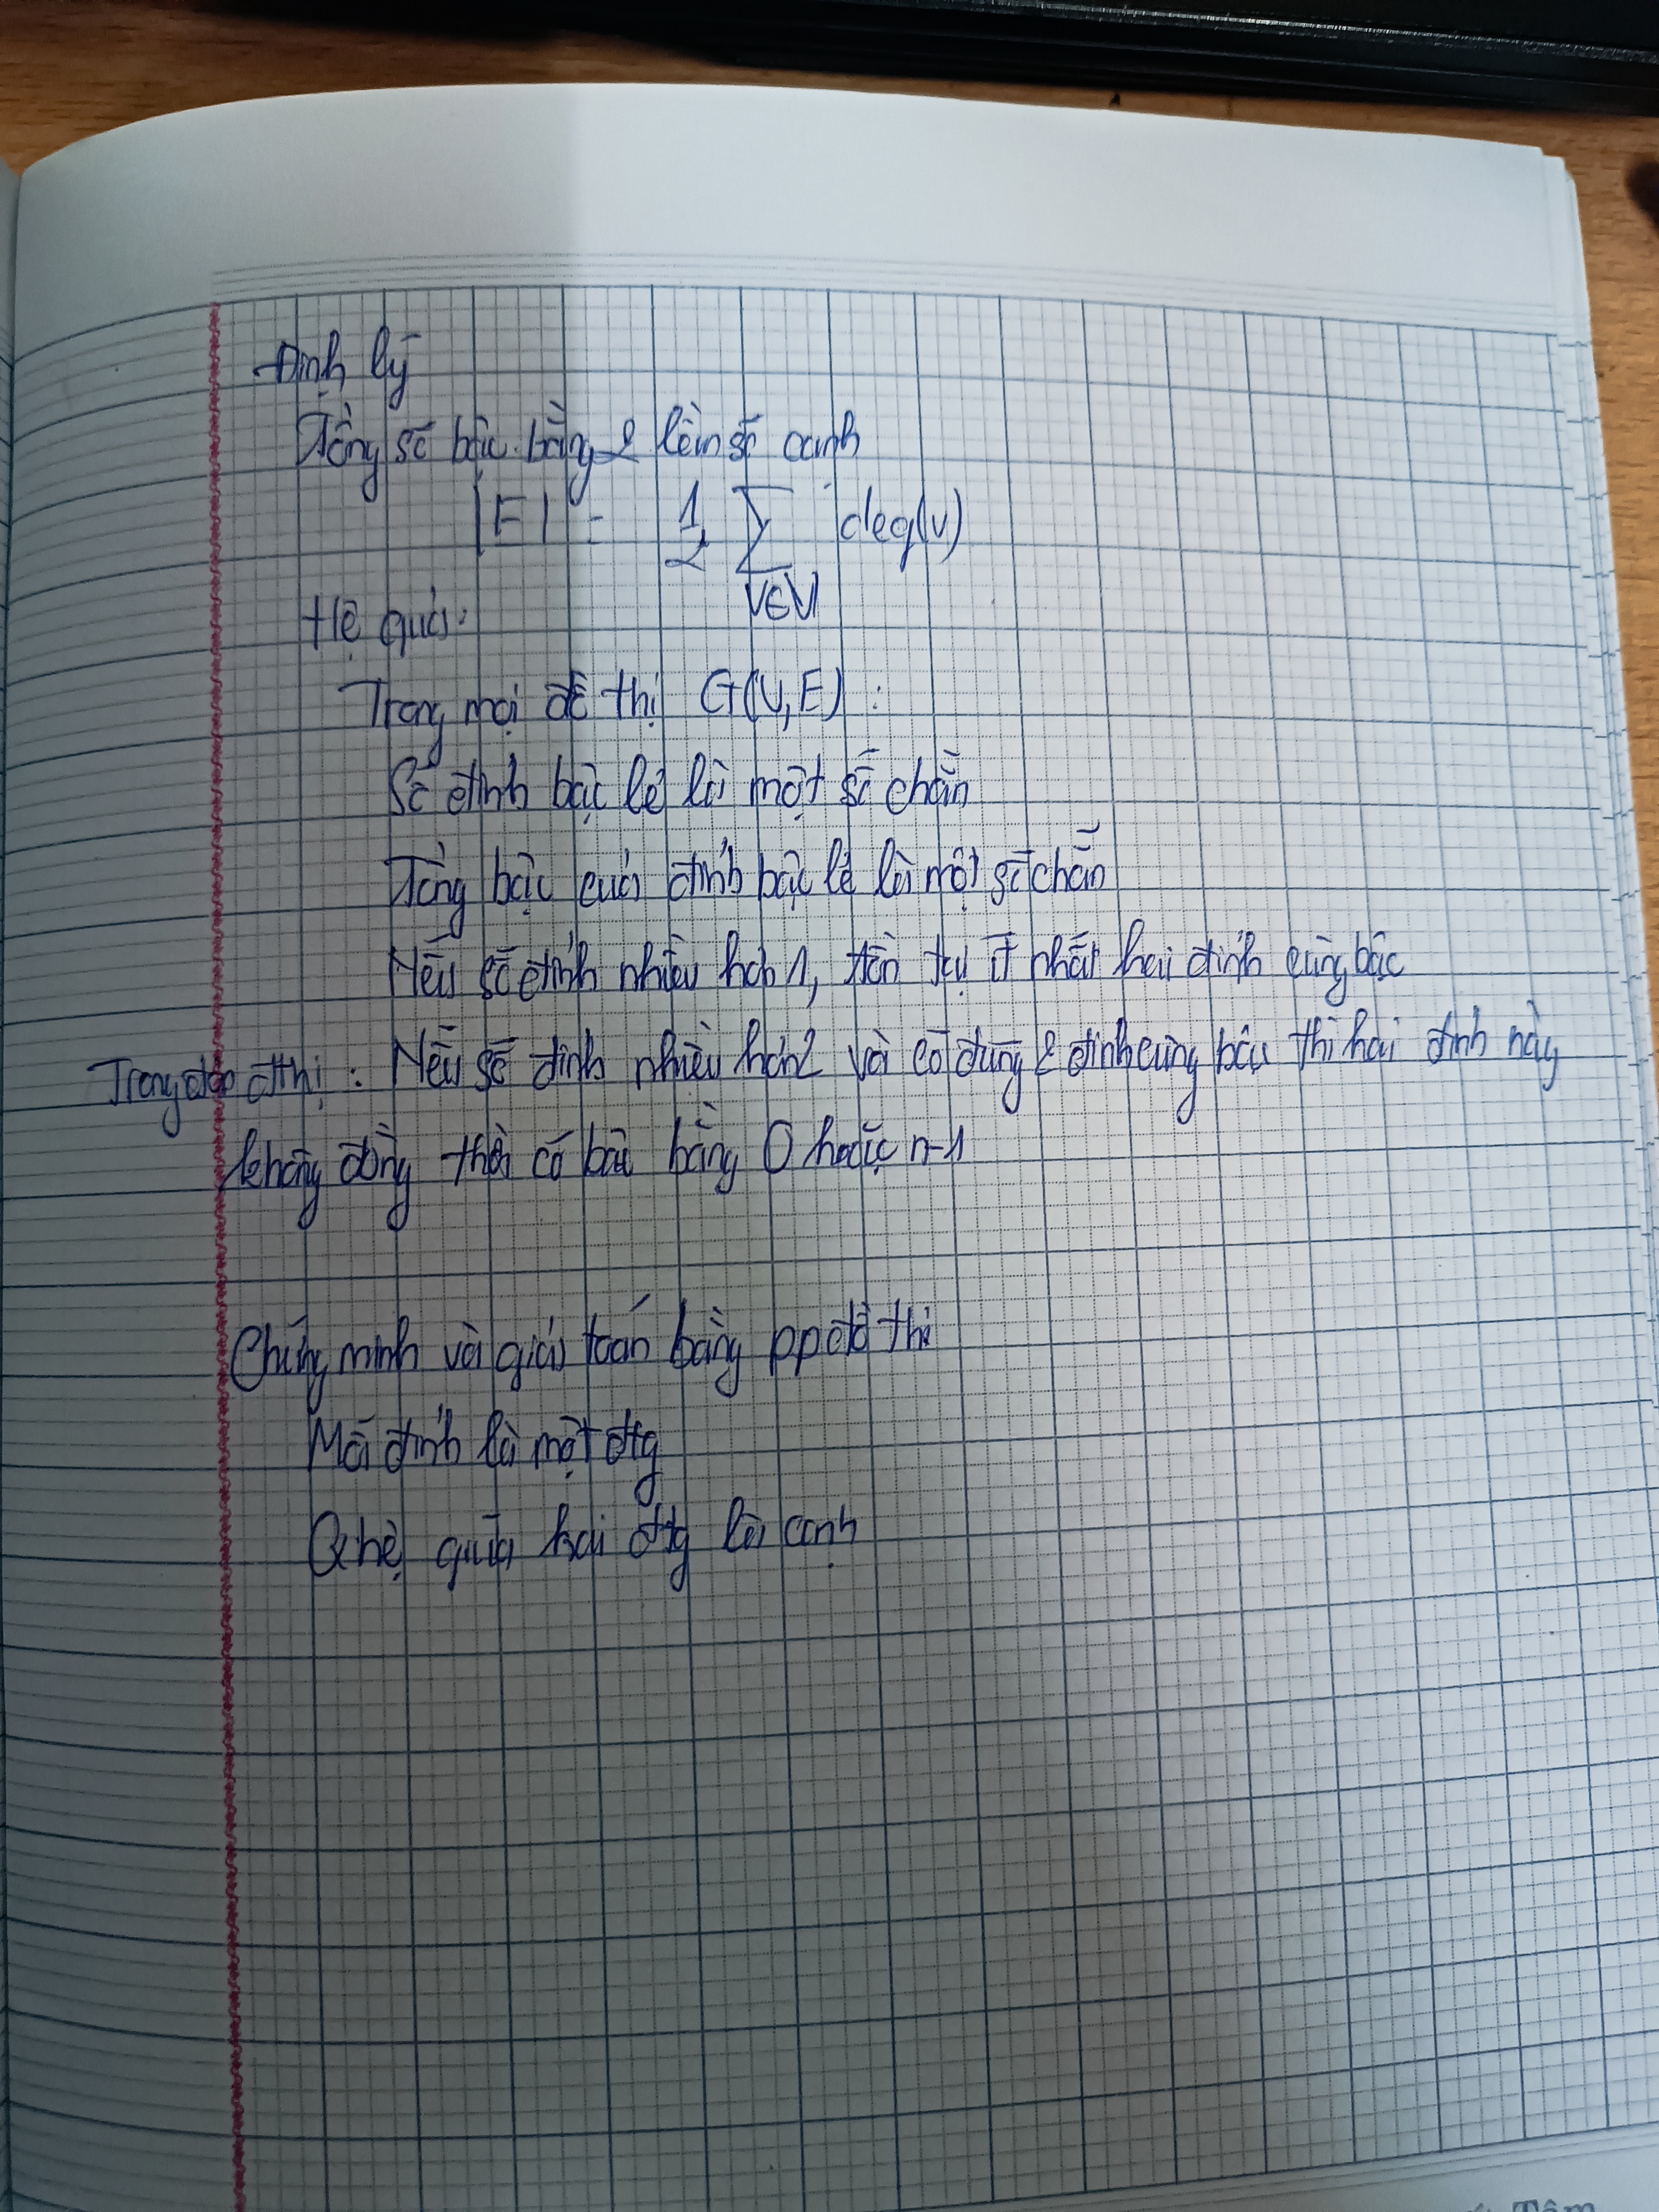 Định lý
Tổng số bậc bằng 2 lần số cạnh
|E| = 1/2 ∑ deg(v)
v∈V
Hệ quả:
Trong mọi đồ thị G(V,E) :
Số đỉnh bậc lẻ là một số chẵn
Tổng bậc của đỉnh bậc lẻ là một số chẵn
Nếu số đỉnh nhiều hơn 1, tồn tại ít nhất hai đỉnh cùng bậc
Trong đơn đthị : Nếu số đỉnh nhiều hơn 2 và có đúng 2 đỉnh cùng bậc thì hai đỉnh này
không đồng thời có bậc bằng 0 hoặc n-1
Chứng minh và giải toán bằng pp đồ thị
Mỗi đỉnh là một đtg
Qhệ giữa hai đtg là cạnh
Tâm